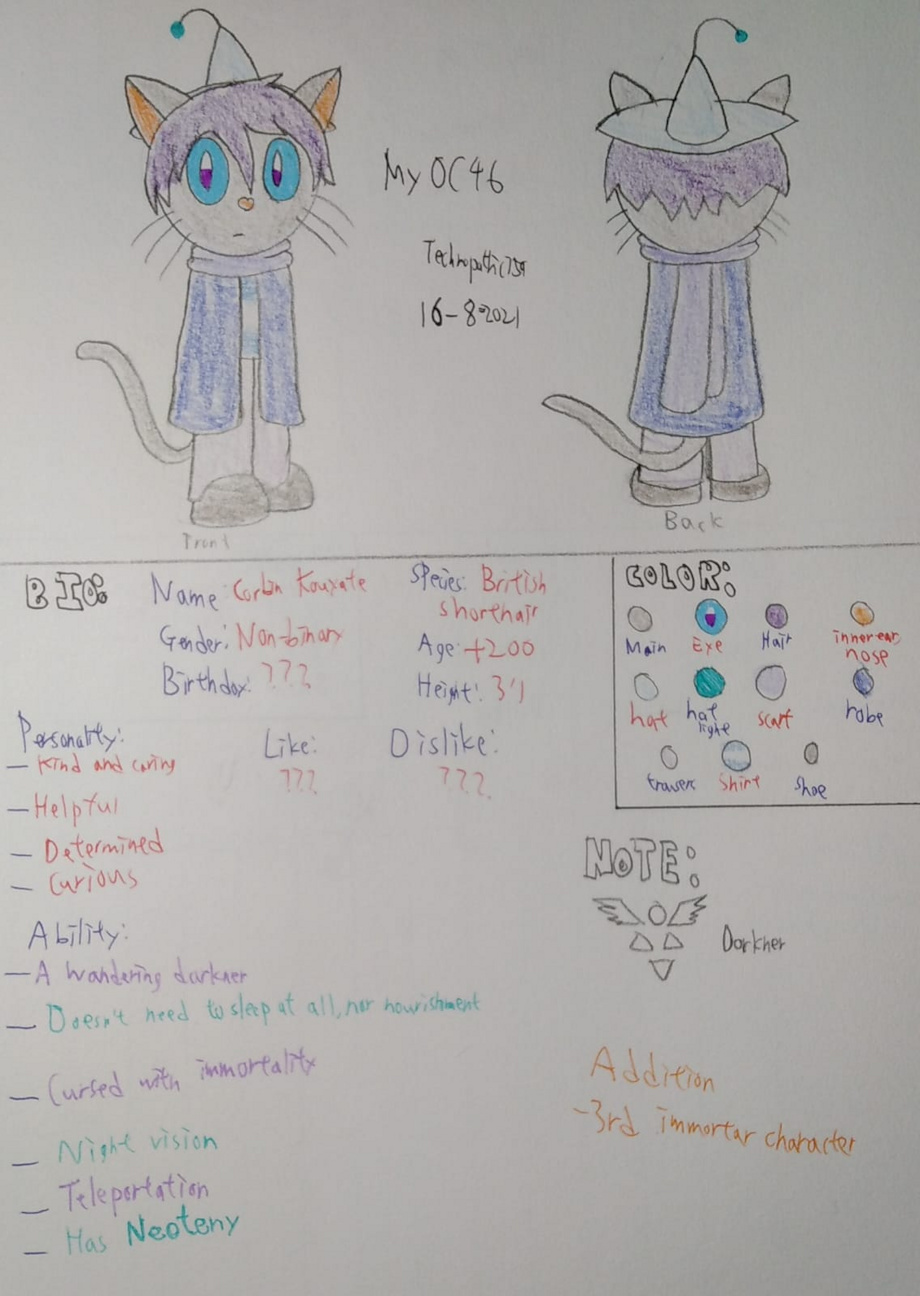 My OC46
16-8-2021
Front
Back
BIO:
Name: Corbin Kouxate
Species: British
shorthair
Gender: Non-binary
Age: +200
Birthday: ???
Height: 3'1
Personality:
— Kind and caring
— Helpful
— Determined
— Curious
Like:
???
Dislike:
???
Ability:
— A wandering darkner
— Doesn't need to sleep at all, nor nourishment
— Cursed with immortality
— Night vision
— Teleportation
— Has Neoteny
COLOR:
Main
Eye
Hair
inner ear
nose
hat
hat
light
scarf
robe
Shirt
Shoe
NOTE:
Darkner
Addition
-3rd immortar character